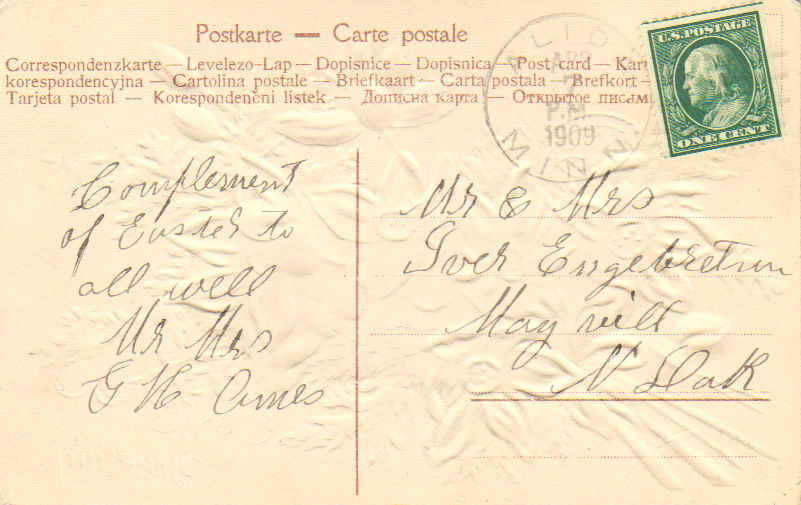 Postkarte — Carte postale
Correspondenzkarte — Levelezo-Lap — Dopisnice — Dopisnica — Post card — Kar
korespondencyjna — Cartolina postale — Briefkaart — Carta postala — Brefkort —
Tarjeta postal — Korespondenční listek — Дописна карта — Открытое писам
ALIDA
APR
7
P.M.
1909
MINN.
U.S. POSTAGE
ONE CENT
Complement
of Easter to
all well
Mr Mrs
G H Ames
Mr & Mrs
Iver Engebretson
May vill
N Dak